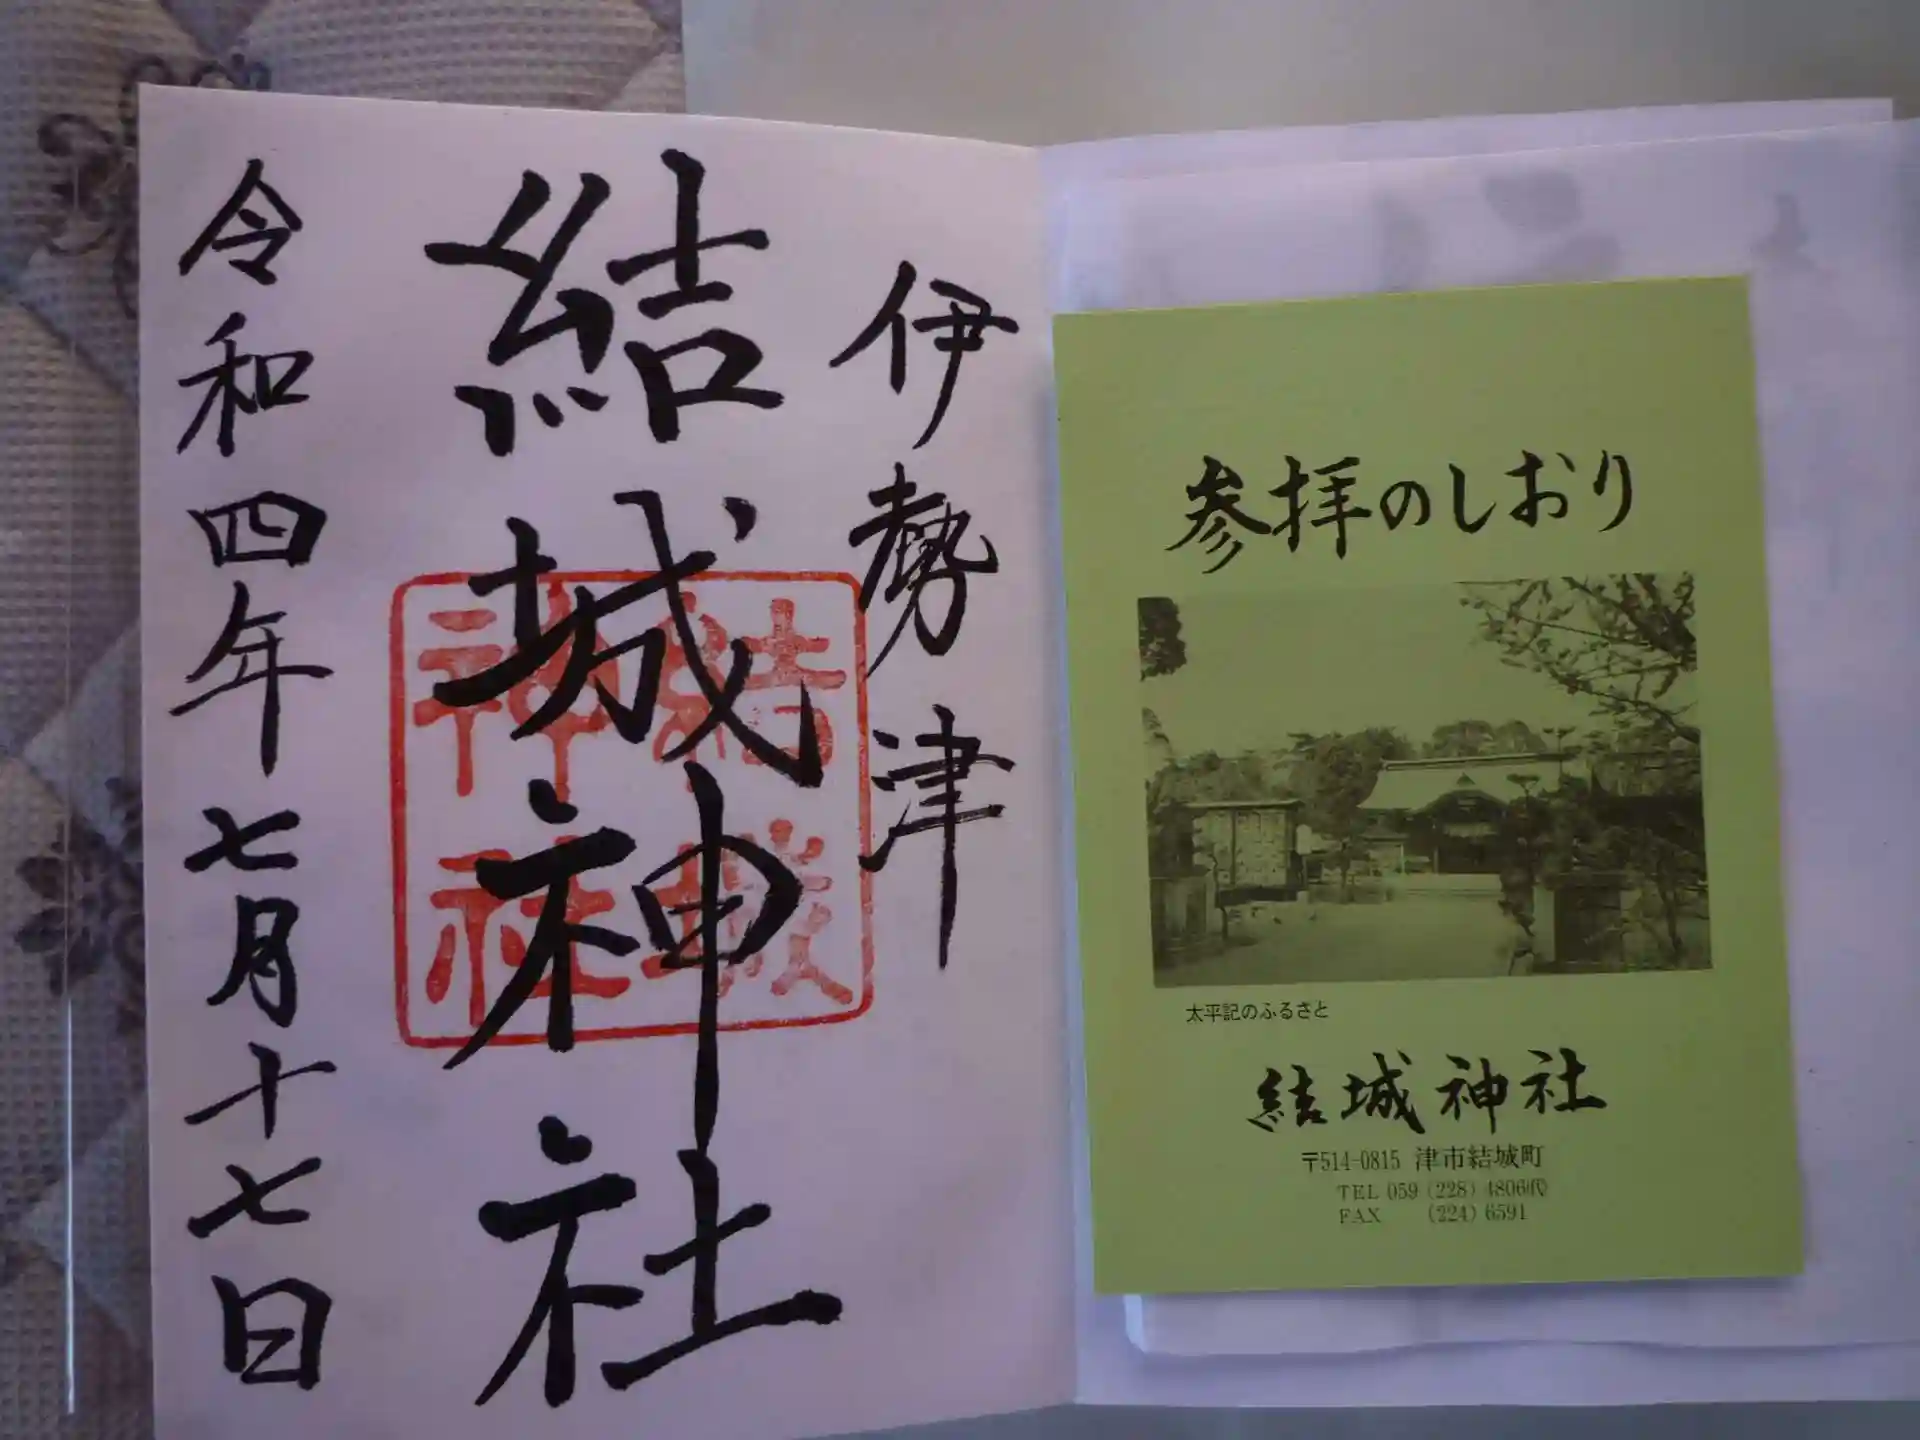 伊勢津
結城神社
結城
神社
令和四年七月十七日
参拝のしおり
太平記のふるさと
結城神社
〒514-0815 津市結城町
TEL 059 (228) 4806代
FAX (224) 6591